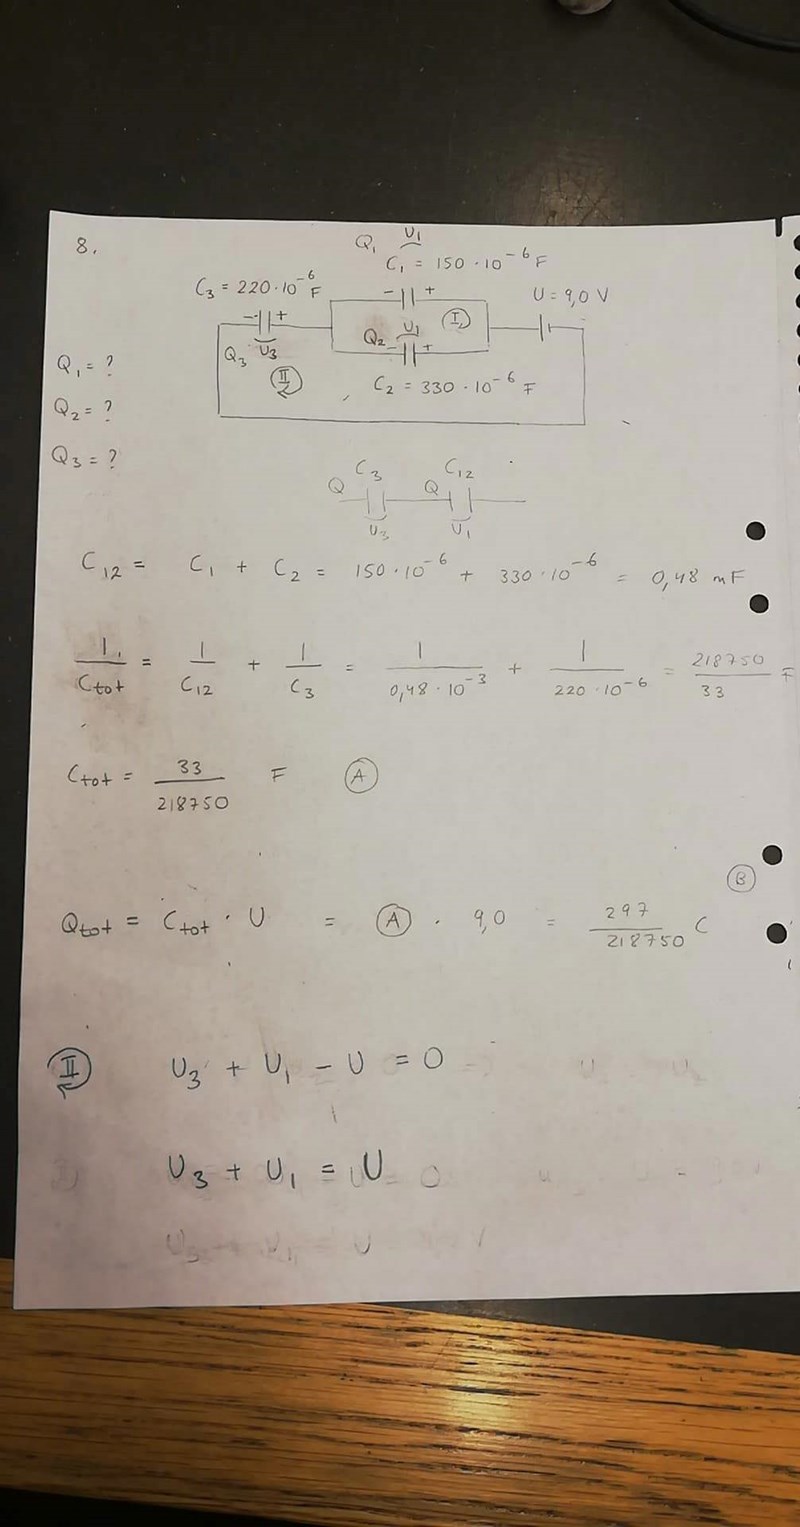 8.
Q₁ U₁
C₁ = 150 · 10⁻⁶ F
C₃ = 220 · 10⁻⁶ F
U = 9,0 V
- +
- + I
Q₂ U₁
Q₃ U₃
- +
II
C₂ = 330 · 10⁻⁶ F
Q₁ = ?
Q₂ = ?
Q₃ = ?
C₃ C₁₂
Q Q
U₃ U₁
C₁₂ = C₁ + C₂ = 150 · 10⁻⁶ + 330 · 10⁻⁶ = 0,48 mF
1/Ctot = 1/C₁₂ + 1/C₃ = 1/(0,48 · 10⁻³) + 1/(220 · 10⁻⁶) = 218750/33 F
Ctot = 33/218750 F A
B
Qtot = Ctot · U = A · 9,0 = 297/218750 C
II U₃ + U₁ - U = 0
U₃ + U₁ = U